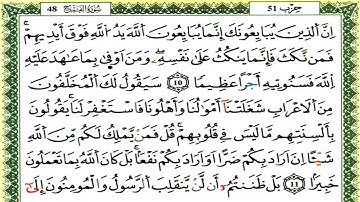 48 سُورَةُ الفَتْحِ حِزْب 51
إِنَّ ٱلَّذِينَ يُبَايِعُونَكَ إِنَّمَا يُبَايِعُونَ ٱللَّهَ يَدُ ٱللَّهِ فَوْقَ أَيْدِيهِمْ
فَمَن نَّكَثَ فَإِنَّمَا يَنكُثُ عَلَىٰ نَفْسِهِۦ وَمَنْ أَوْفَىٰ بِمَا عَٰهَدَ عَلَيْهِ
ٱللَّهَ فَسَنُوتِيهِ أَجْرًا عَظِيمًا 10 سَيَقُولُ لَكَ ٱلْمُخَلَّفُونَ
مِنَ ٱلْأَعْرَابِ شَغَلَتْنَا أَمْوَٰلُنَا وَأَهْلُونَا فَٱسْتَغْفِرْ لَنَا يَقُولُونَ
بِأَلْسِنَتِهِم مَّا لَيْسَ فِى قُلُوبِهِمْ قُلْ فَمَن يَّمْلِكُ لَكُم مِّنَ ٱللَّهِ
شَيْـًٔا إِنْ أَرَادَ بِكُمْ ضَرًّا أَوْ أَرَادَ بِكُمْ نَفْعًا بَلْ كَانَ ٱللَّهُ بِمَا تَعْمَلُونَ
خَبِيرًا 11 بَلْ ظَنَنتُمُۥ أَن لَّنْ يَّنقَلِبَ ٱلرَّسُولُ وَٱلْمُومِنُونَ إِلَىٰ